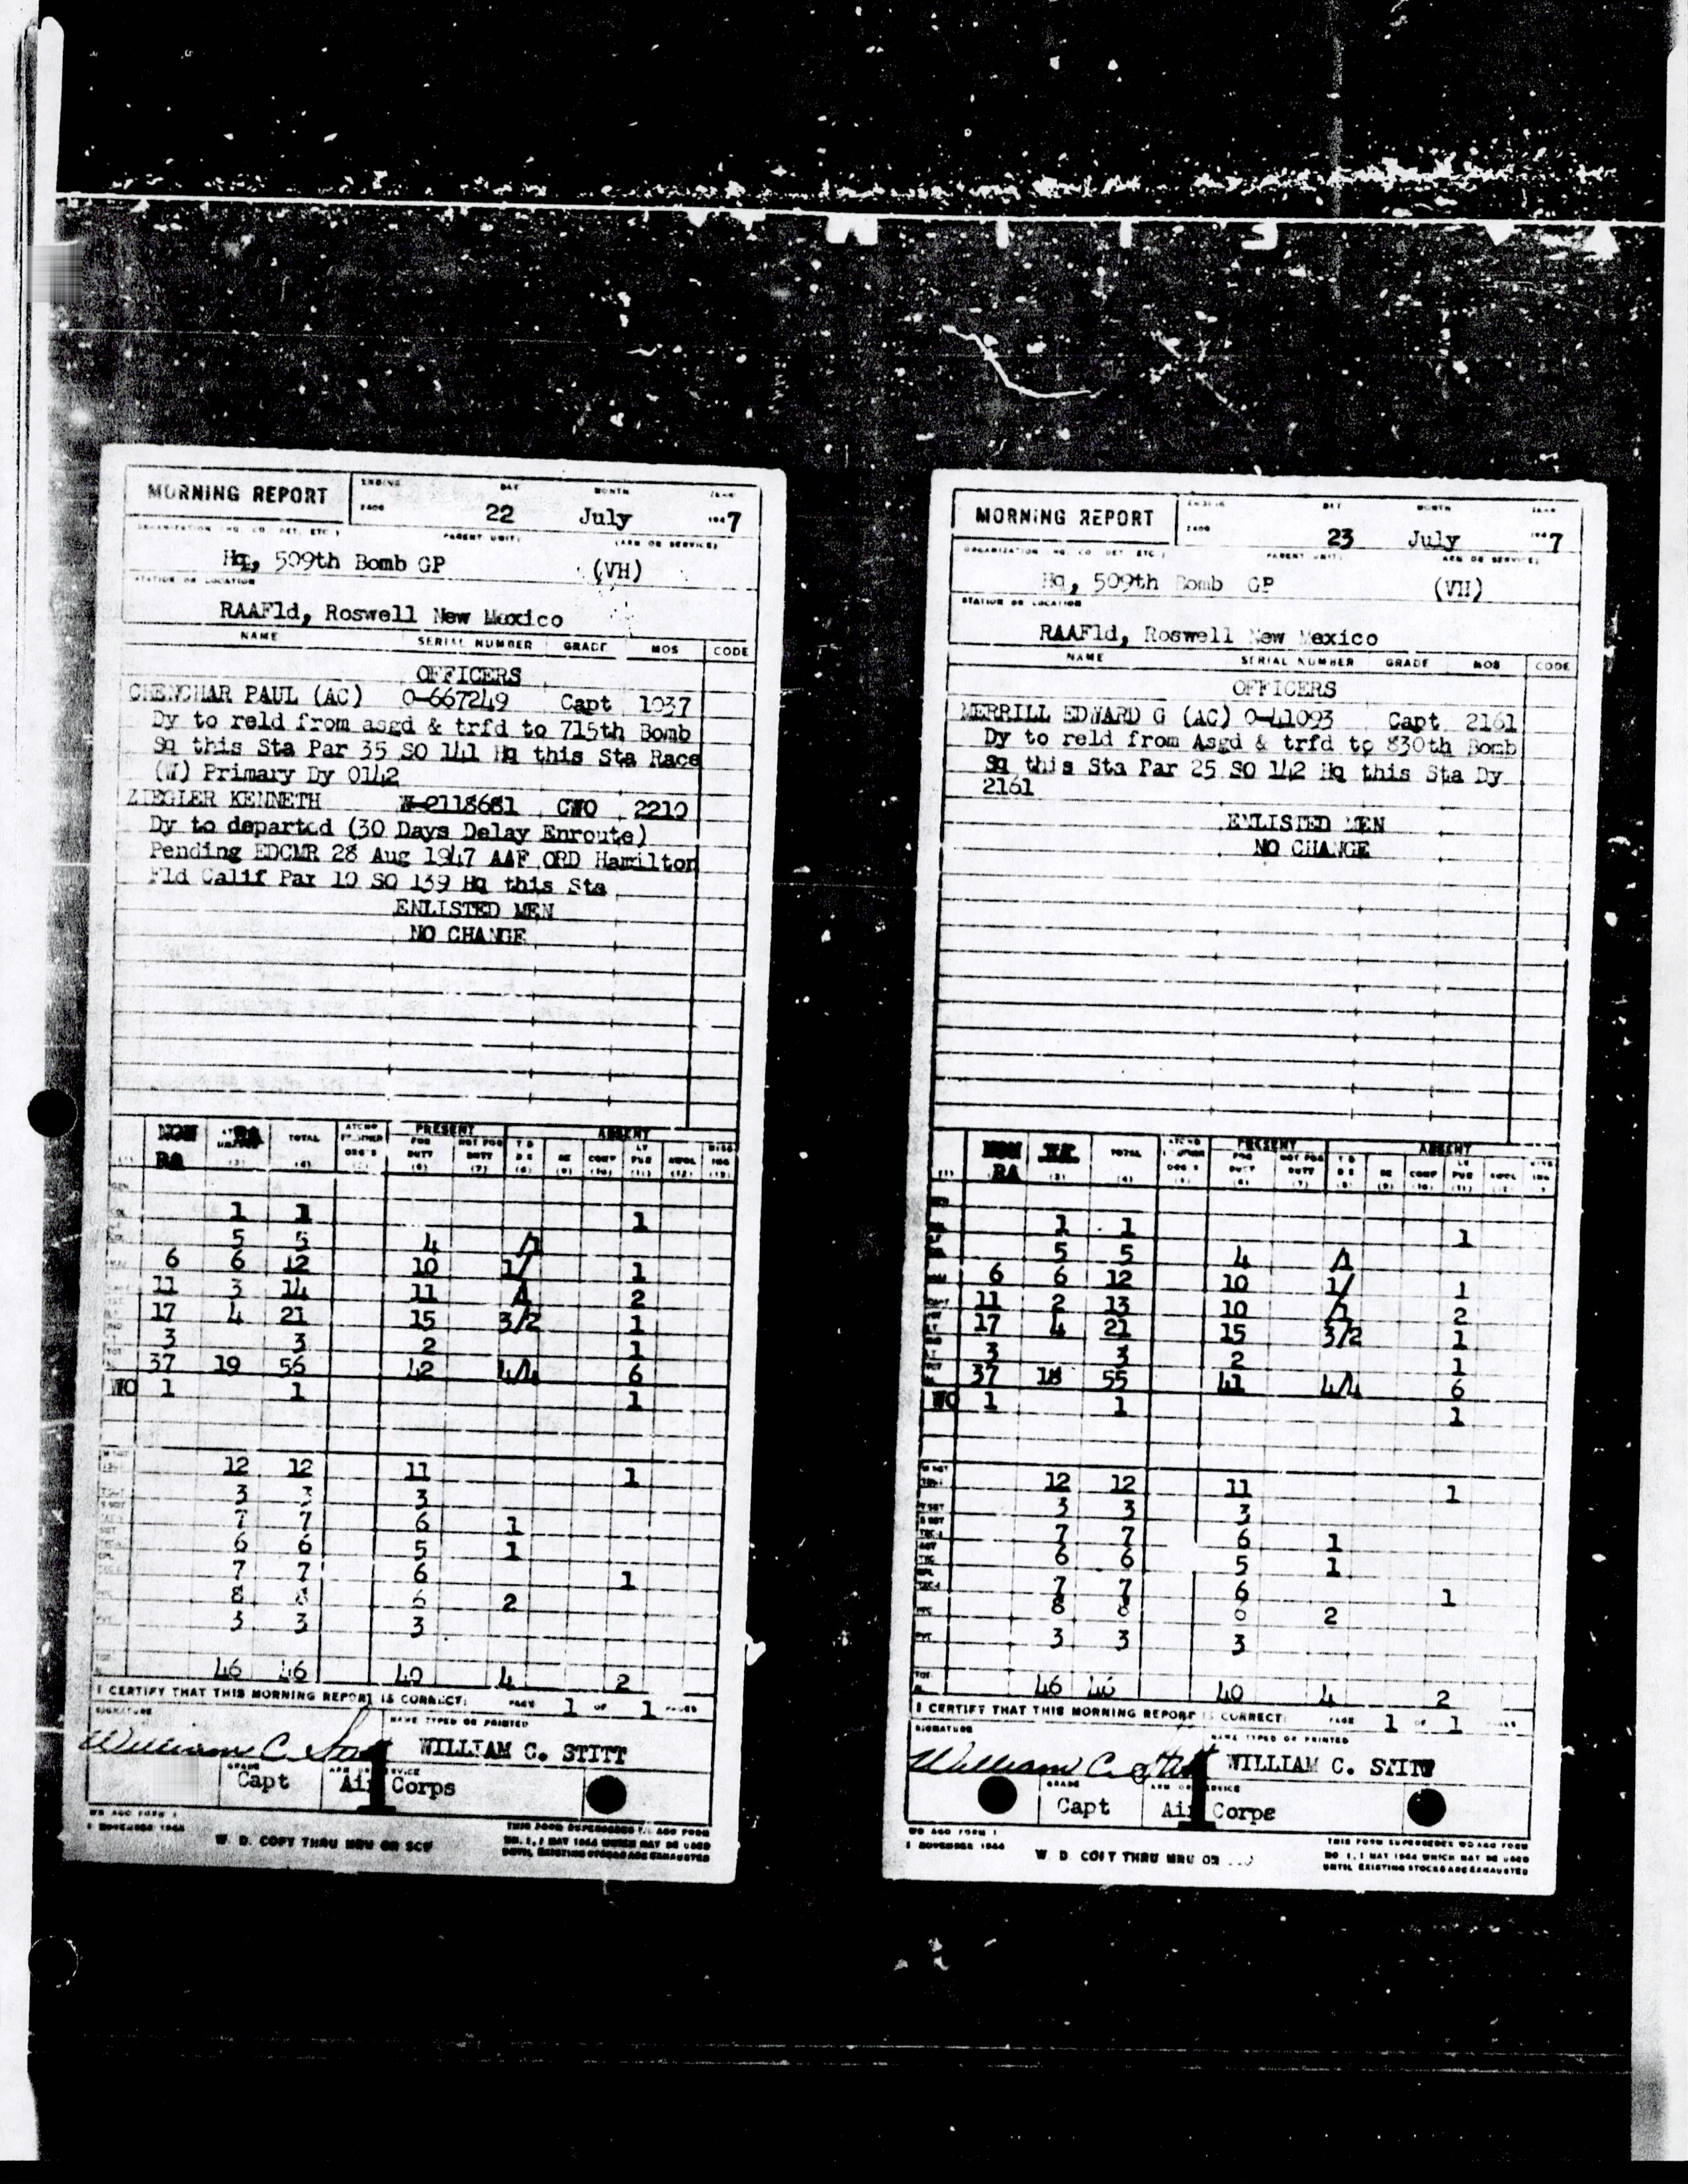 MORNING REPORT
ENDING DAY MONTH YEAR
2400 22 July 1947
ORGANIZATION (HQ. CO. DET. ETC.) PARENT UNIT (ARM OR SERVICE)
Hq, 509th Bomb GP (VH)
STATION OR LOCATION
RAAFld, Roswell New Mexico
NAME SERIAL NUMBER GRADE MOS CODE
OFFICERS
CHENCHAR PAUL (AC) O-667249 Capt 1037
Dy to reld from asgd & trfd to 715th Bomb
Sq this Sta Par 35 SO 141 Hq this Sta Race
(W) Primary Dy 0142
ZIEGLER KENNETH W-2118681 CWO 2210
Dy to departed (30 Days Delay Enroute)
Pending EDCMR 28 Aug 1947 AAF ORD Hamilton
Fld Calif Par 10 SO 139 Hq this Sta
ENLISTED MEN
NO CHANGE
NON RA TOTAL PRESENT ABSENT
FOR DUTY NOT FOR DUTY
(3) (4) (6) (7) (8) (9) (10) (11) (12) (13)
1 1 1
5 5 4
6 6 12 10 1/ 1
11 3 14 11 2
17 4 21 15 3/2 1
3 3 2 1
37 19 56 42 4/4 6
WO 1 1 1
12 12 11 1
3 3 3
7 7 6 1
6 6 5 1
7 7 6 1
8 8 6 2
3 3 3
46 46 40 4 2
I CERTIFY THAT THIS MORNING REPORT IS CORRECT: PAGE 1 OF 1 PAGES
SIGNATURE NAME TYPED OR PRINTED
William C. Stitt WILLIAM C. STITT
GRADE ARM OR SERVICE
Capt Air Corps
WD AGO FORM 1
1 NOVEMBER 1944
W. D. COPY THRU MRU OR SCU
THIS FORM SUPERSEDES WD AGO FORM
NO. 1, 1 MAY 1944 WHICH MAY BE USED
UNTIL EXISTING STOCKS ARE EXHAUSTED
MORNING REPORT
DAY MONTH YEAR
2400 23 July 1947
ORGANIZATION HQ. CO. DET. ETC.) PARENT UNIT ARM OR SERVICE)
Hq, 509th Bomb GP (VH)
STATION OR LOCATION
RAAFld, Roswell New Mexico
NAME SERIAL NUMBER GRADE MOS CODE
OFFICERS
MERRILL EDWARD G (AC) O-41093 Capt 2161
Dy to reld from Asgd & trfd to 830th Bomb
Sq this Sta Par 25 SO 142 Hq this Sta Dy
2161
ENLISTED MEN
NO CHANGE
NON RA TOTAL PRESENT ABSENT
(3) (4) (6) (7) (8) (9) (10) (11)
1 1 1
5 5 4
6 6 12 10 1/ 1
11 2 13 10 2
17 4 21 15 3/2 1
3 3 2 1
37 18 55 41 4/4 6
WO 1 1 1
12 12 11 1
3 3 3
7 7 6 1
6 6 5 1
7 7 6 1
8 8 6 2
3 3 3
46 46 40 4 2
I CERTIFY THAT THIS MORNING REPORT IS CORRECT: PAGE 1 OF 1
SIGNATURE NAME TYPED OR PRINTED
William C. Stitt WILLIAM C. STITT
GRADE ARM OR SERVICE
Capt Air Corps
WD AGO FORM 1
1 NOVEMBER 1944
W. D. COPY THRU MRU OR
THIS FORM SUPERSEDES WD AGO FORM
NO. 1, 1 MAY 1944 WHICH MAY BE USED
UNTIL EXISTING STOCKS ARE EXHAUSTED